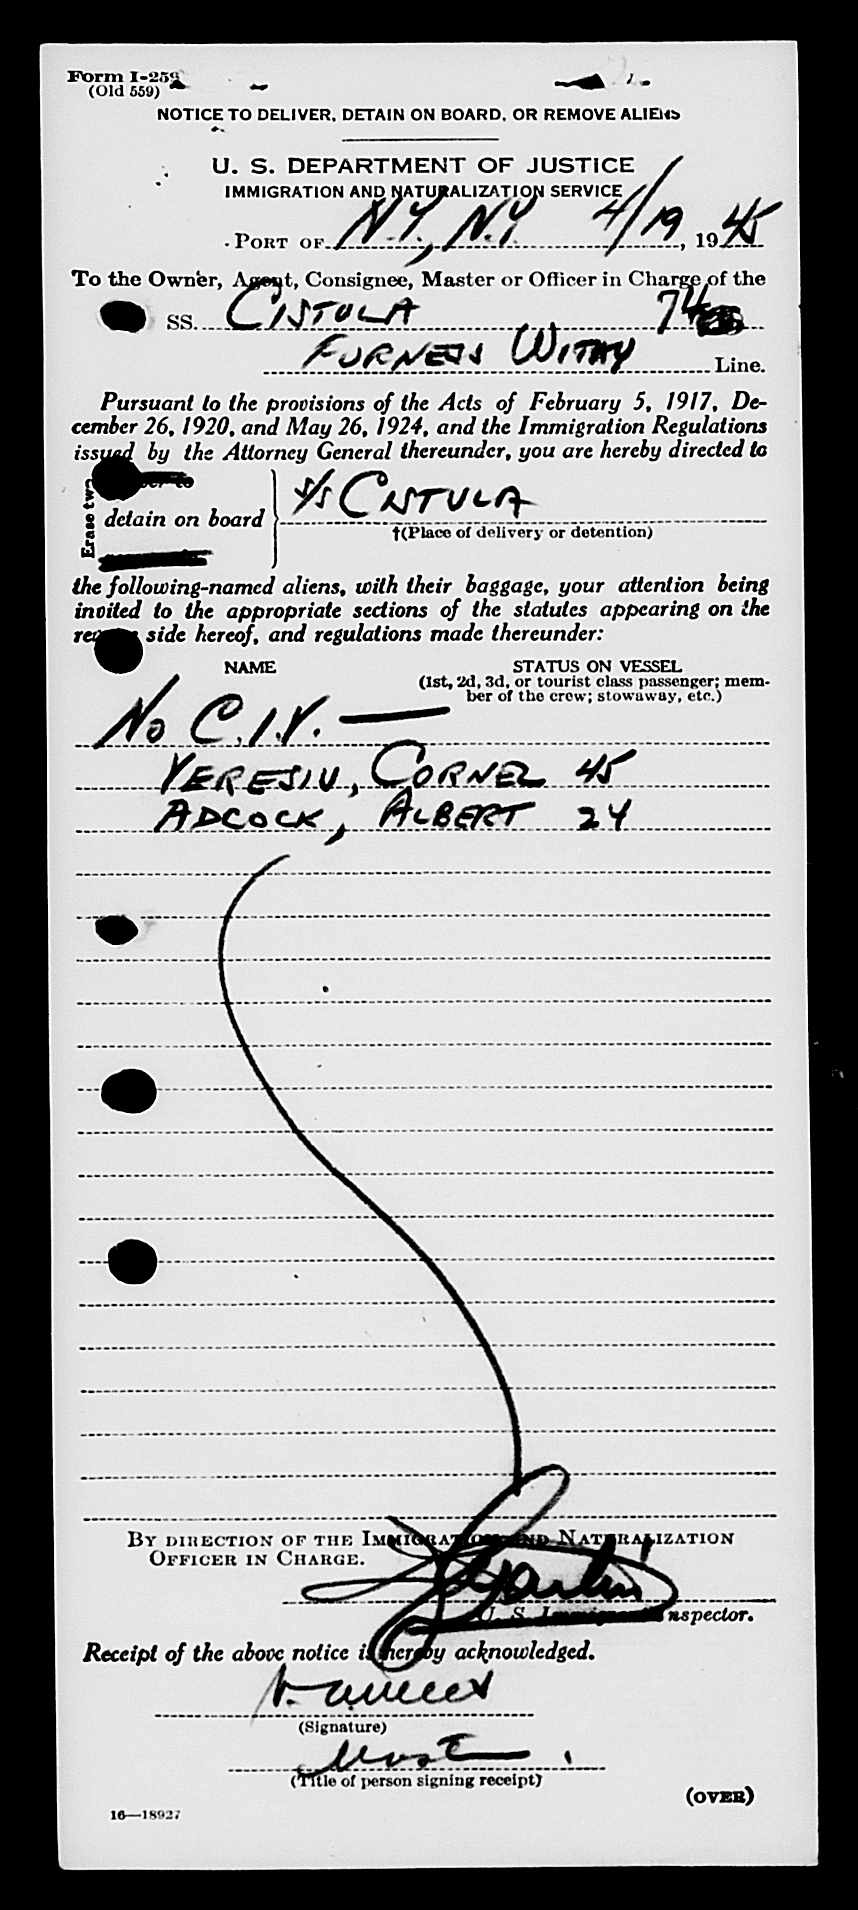 Form I-259
(Old 559)
NOTICE TO DELIVER, DETAIN ON BOARD, OR REMOVE ALIENS
U. S. DEPARTMENT OF JUSTICE
IMMIGRATION AND NATURALIZATION SERVICE
PORT OF N.Y., N.Y. 4/19, 1945
To the Owner, Agent, Consignee, Master or Officer in Charge of the
SS. CISTULA 74
FURNESS WITHY Line.
Pursuant to the provisions of the Acts of February 5, 1917, De-
cember 26, 1920, and May 26, 1924, and the Immigration Regulations
issued by the Attorney General thereunder, you are hereby directed to
Erase two
detain on board
S/S CISTULA
†(Place of delivery or detention)
the following-named aliens, with their baggage, your attention being
invited to the appropriate sections of the statutes appearing on the
side hereof, and regulations made thereunder:
NAME STATUS ON VESSEL
(1st, 2d, 3d, or tourist class passenger; mem-
ber of the crew; stowaway, etc.)
No C.I.V. —
VERESIU, CORNEL 45
ADCOCK, ALBERT 24
BY DIRECTION OF THE IMMIGRATION AND NATURALIZATION
OFFICER IN CHARGE.
U. S. Immigrant Inspector.
Receipt of the above notice is hereby acknowledged.
(Signature)
(Title of person signing receipt)
(OVER)
16—18927